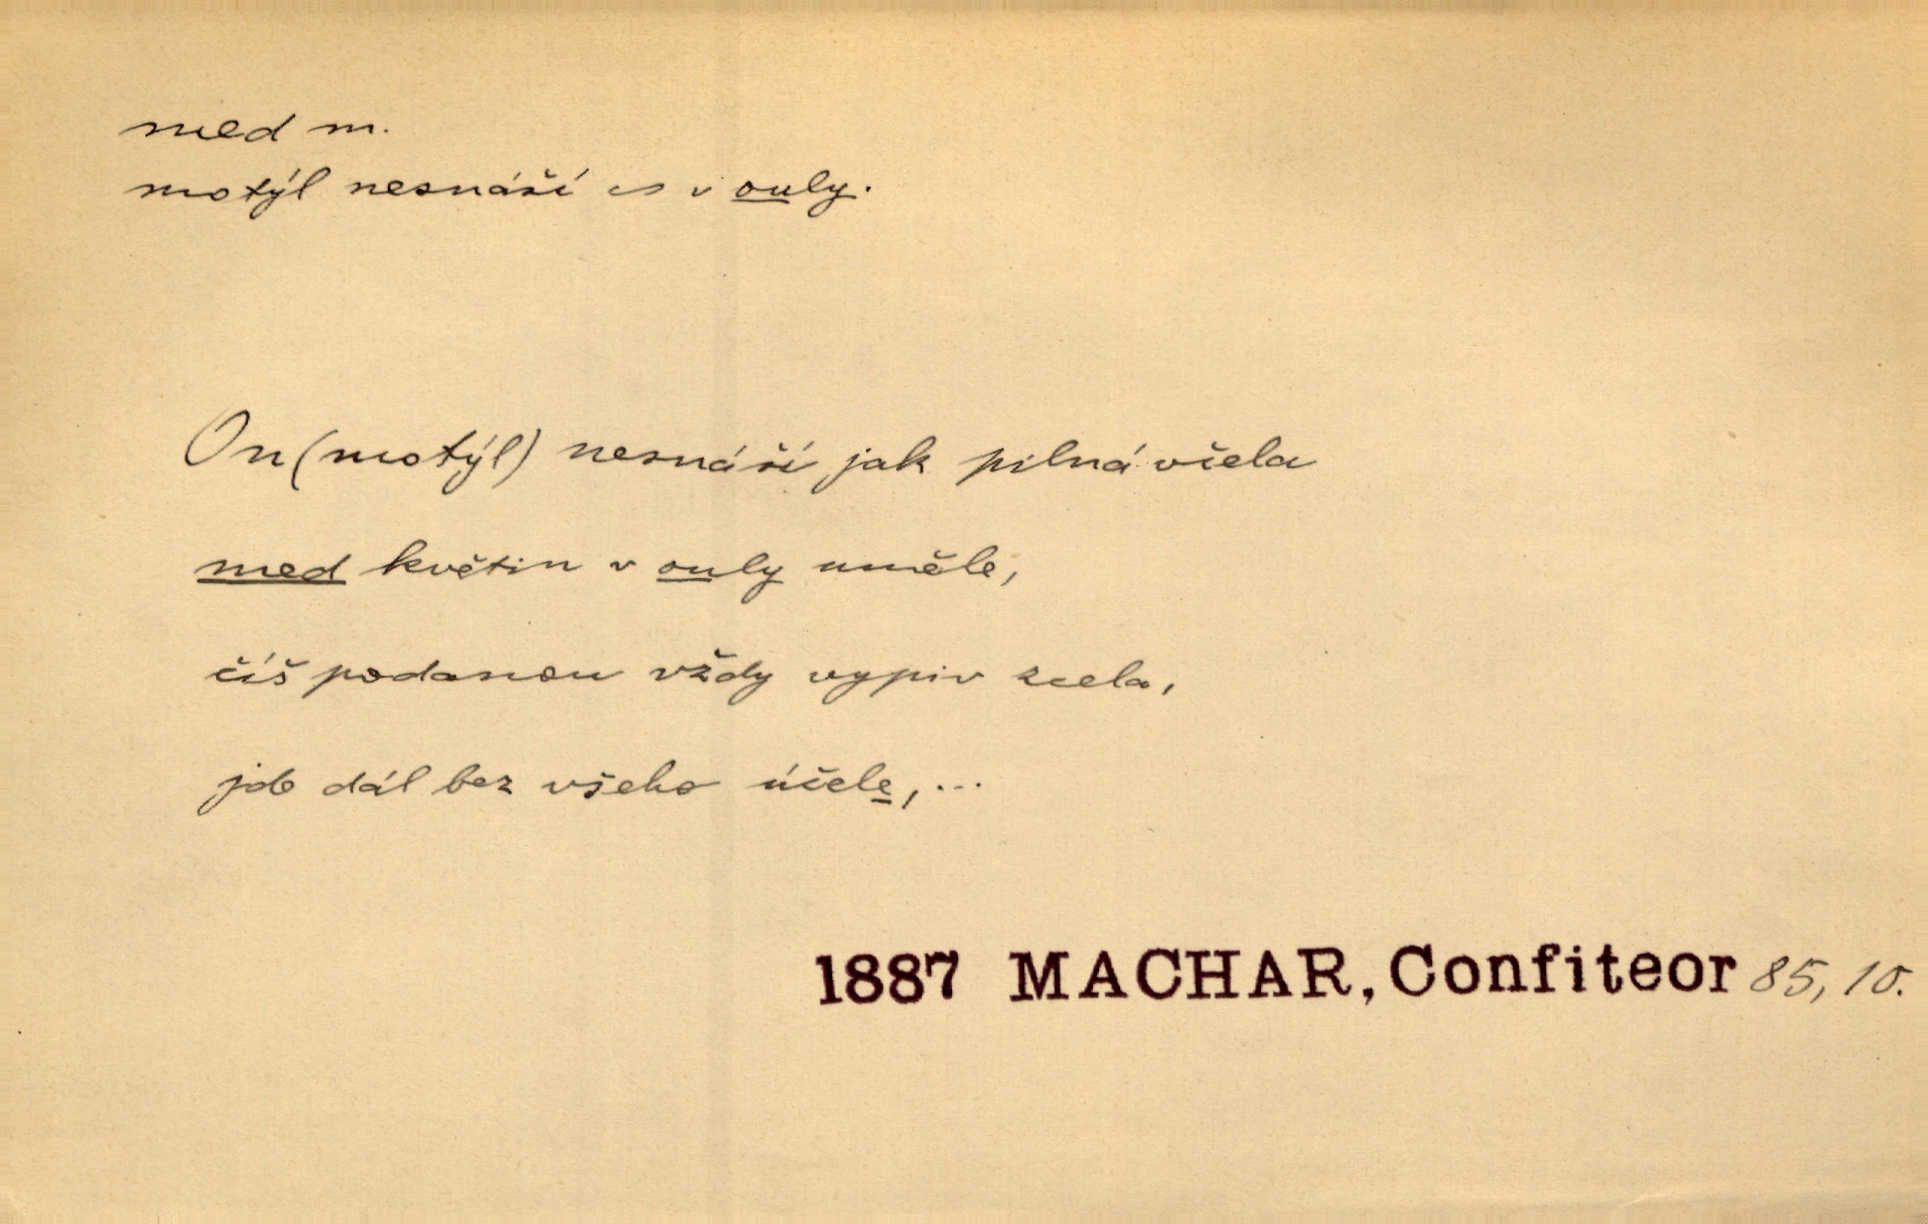 med m.
motýl nesnáší ~ v ouly.
On (motýl) nesnáší jak pilná včela
med květin v ouly uměle,
číš podanou vždy vypiv zcela,
jde dál bez všeho účele, ...
1887 MACHAR, Confiteor 85, 10.